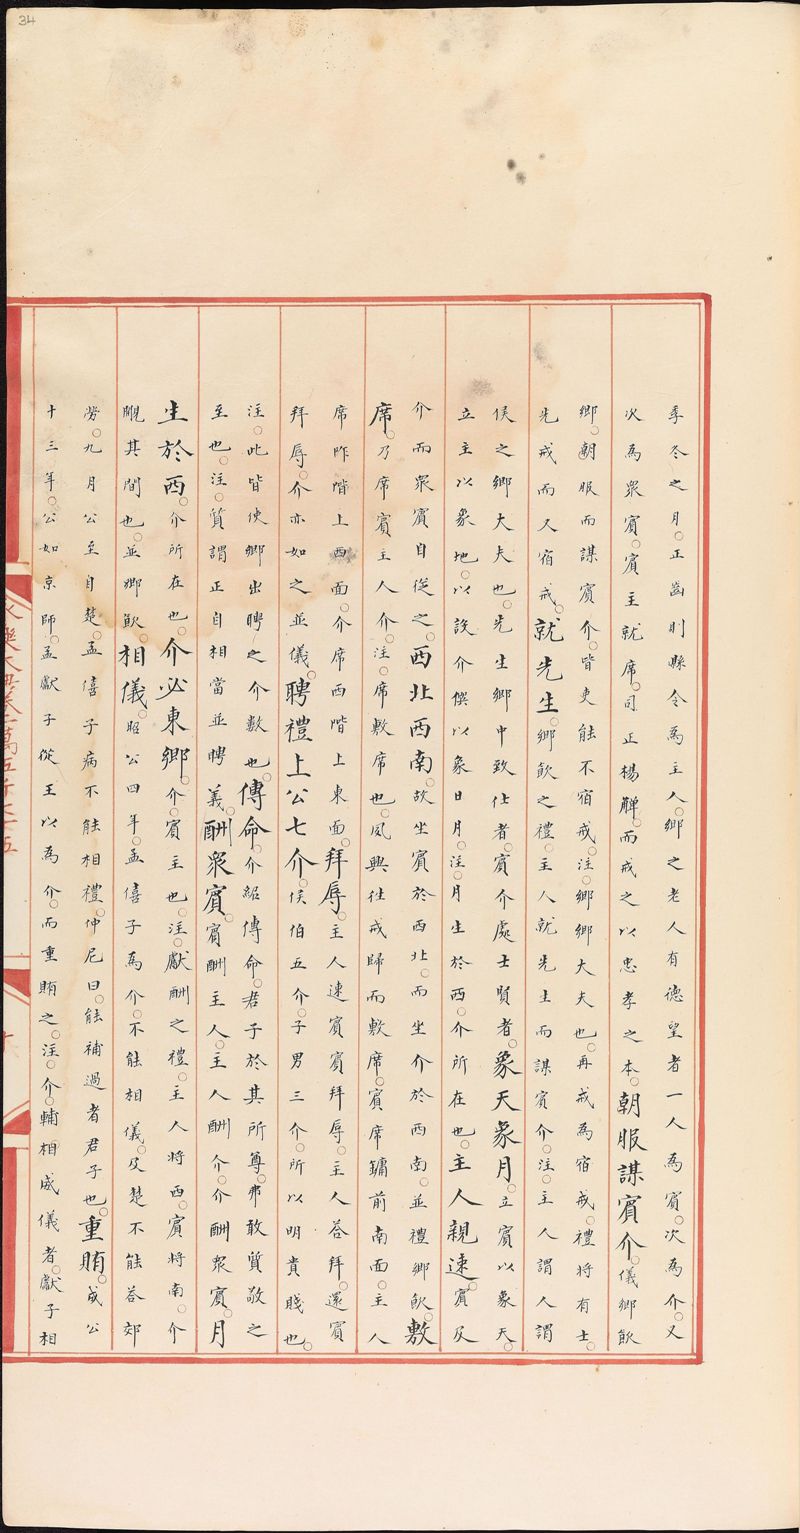 34
季冬之月。正齒則縣令為主人。鄉之老人有德望者一人為賓。次為介。又
次為眾賓。賓主就席。司正楊觶。而戒之以忠孝之本。朝服謀賓介。儀鄉飲
鄉。朝服而謀賓介。皆吏能不宿戒。注。鄉鄉大夫也。再戒為宿戒。禮將有士。
先戒而又宿戒。就先生。鄉飲之禮。主人就先生而謀賓介。注。主人謂人謂
侯之鄉大夫也。先生鄉中致仕者。賓介處士賢者。象天象月。立賓以象天。
立主以象地。以設介僎以象日月。注。月生於西。介所在也。主人親速。賓及
介而眾賓自從之。西北西南。故坐賓於西北。而坐介於西南。並禮鄉飲。敷
席。乃席賓主人介。注。席敷席也。夙興往戒歸而敷席。賓席牖前南面。主人
席阼階上西面。介席西階上東面。拜辱。主人速賓賓拜辱。主人荅拜。還賓
拜辱。介亦如之並儀。聘禮上公七介。侯伯五介。子男三介。所以明貴賤也。
注。此皆使鄉出聘之介數也。傳命。介紹傳命。君子於其所尊。弗敢質敬之
至也。注。質謂正自相當並聘義。酬眾賓。賓酬主人。主人酬介。介酬眾賓。月
生於西。介所在也。介必東鄉。介。賓主也。注。獻酬之禮。主人將西。賓將南。介
覵其間也。並鄉飲。相儀。昭公四年。孟僖子為介。不能相儀。及楚不能荅郊
勞。九月公至自楚。孟僖子病不能相禮。仲尼曰。能補過者君子也。重賄。成公
十三年。公如京師。孟獻子從王以為介。而重賄之。注。介。輔相威儀者。獻子相